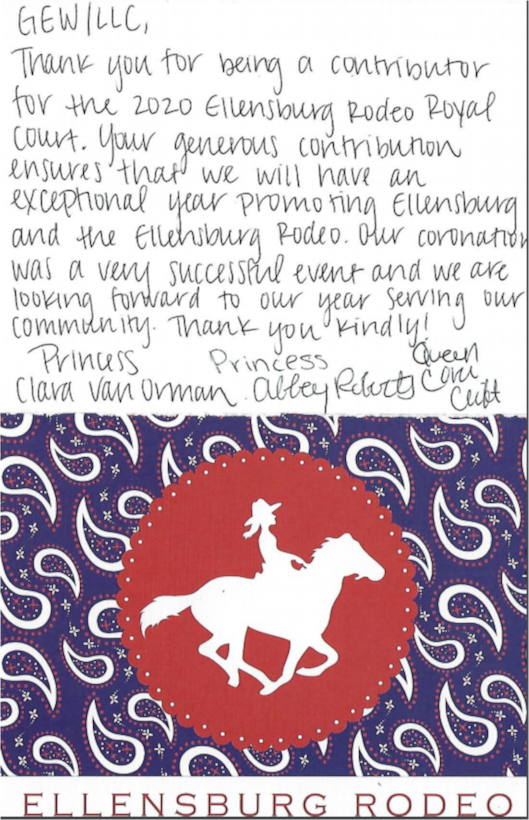 GEW/LLC,
Thank you for being a contributor
for the 2020 Ellensburg Rodeo Royal
Court. Your generous contribution
ensures that we will have an
exceptional year promoting Ellensburg
and the Ellensburg Rodeo. Our coronation
was a very successful event and we are
looking forward to our year serving our
community. Thank you kindly!
Princess Princess Queen
Clara Van Orman Abbey Roberts Cora
Clift
ELLENSBURG RODEO